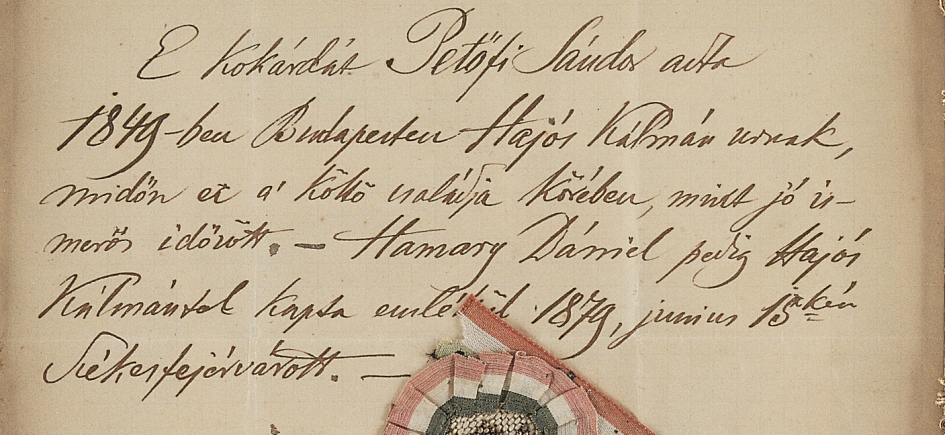 E kokárdát Petőfi Sándor adta
1849-ben Budapesten Hajós Kálmán urnak,
midőn ez a' költő családja körében, mint jó is-
merős időzött. — Hamary Dániel pedig Hajós
Kálmántól kapta emlékül 1879, junius 15-kén
Székesfejérvárott. —